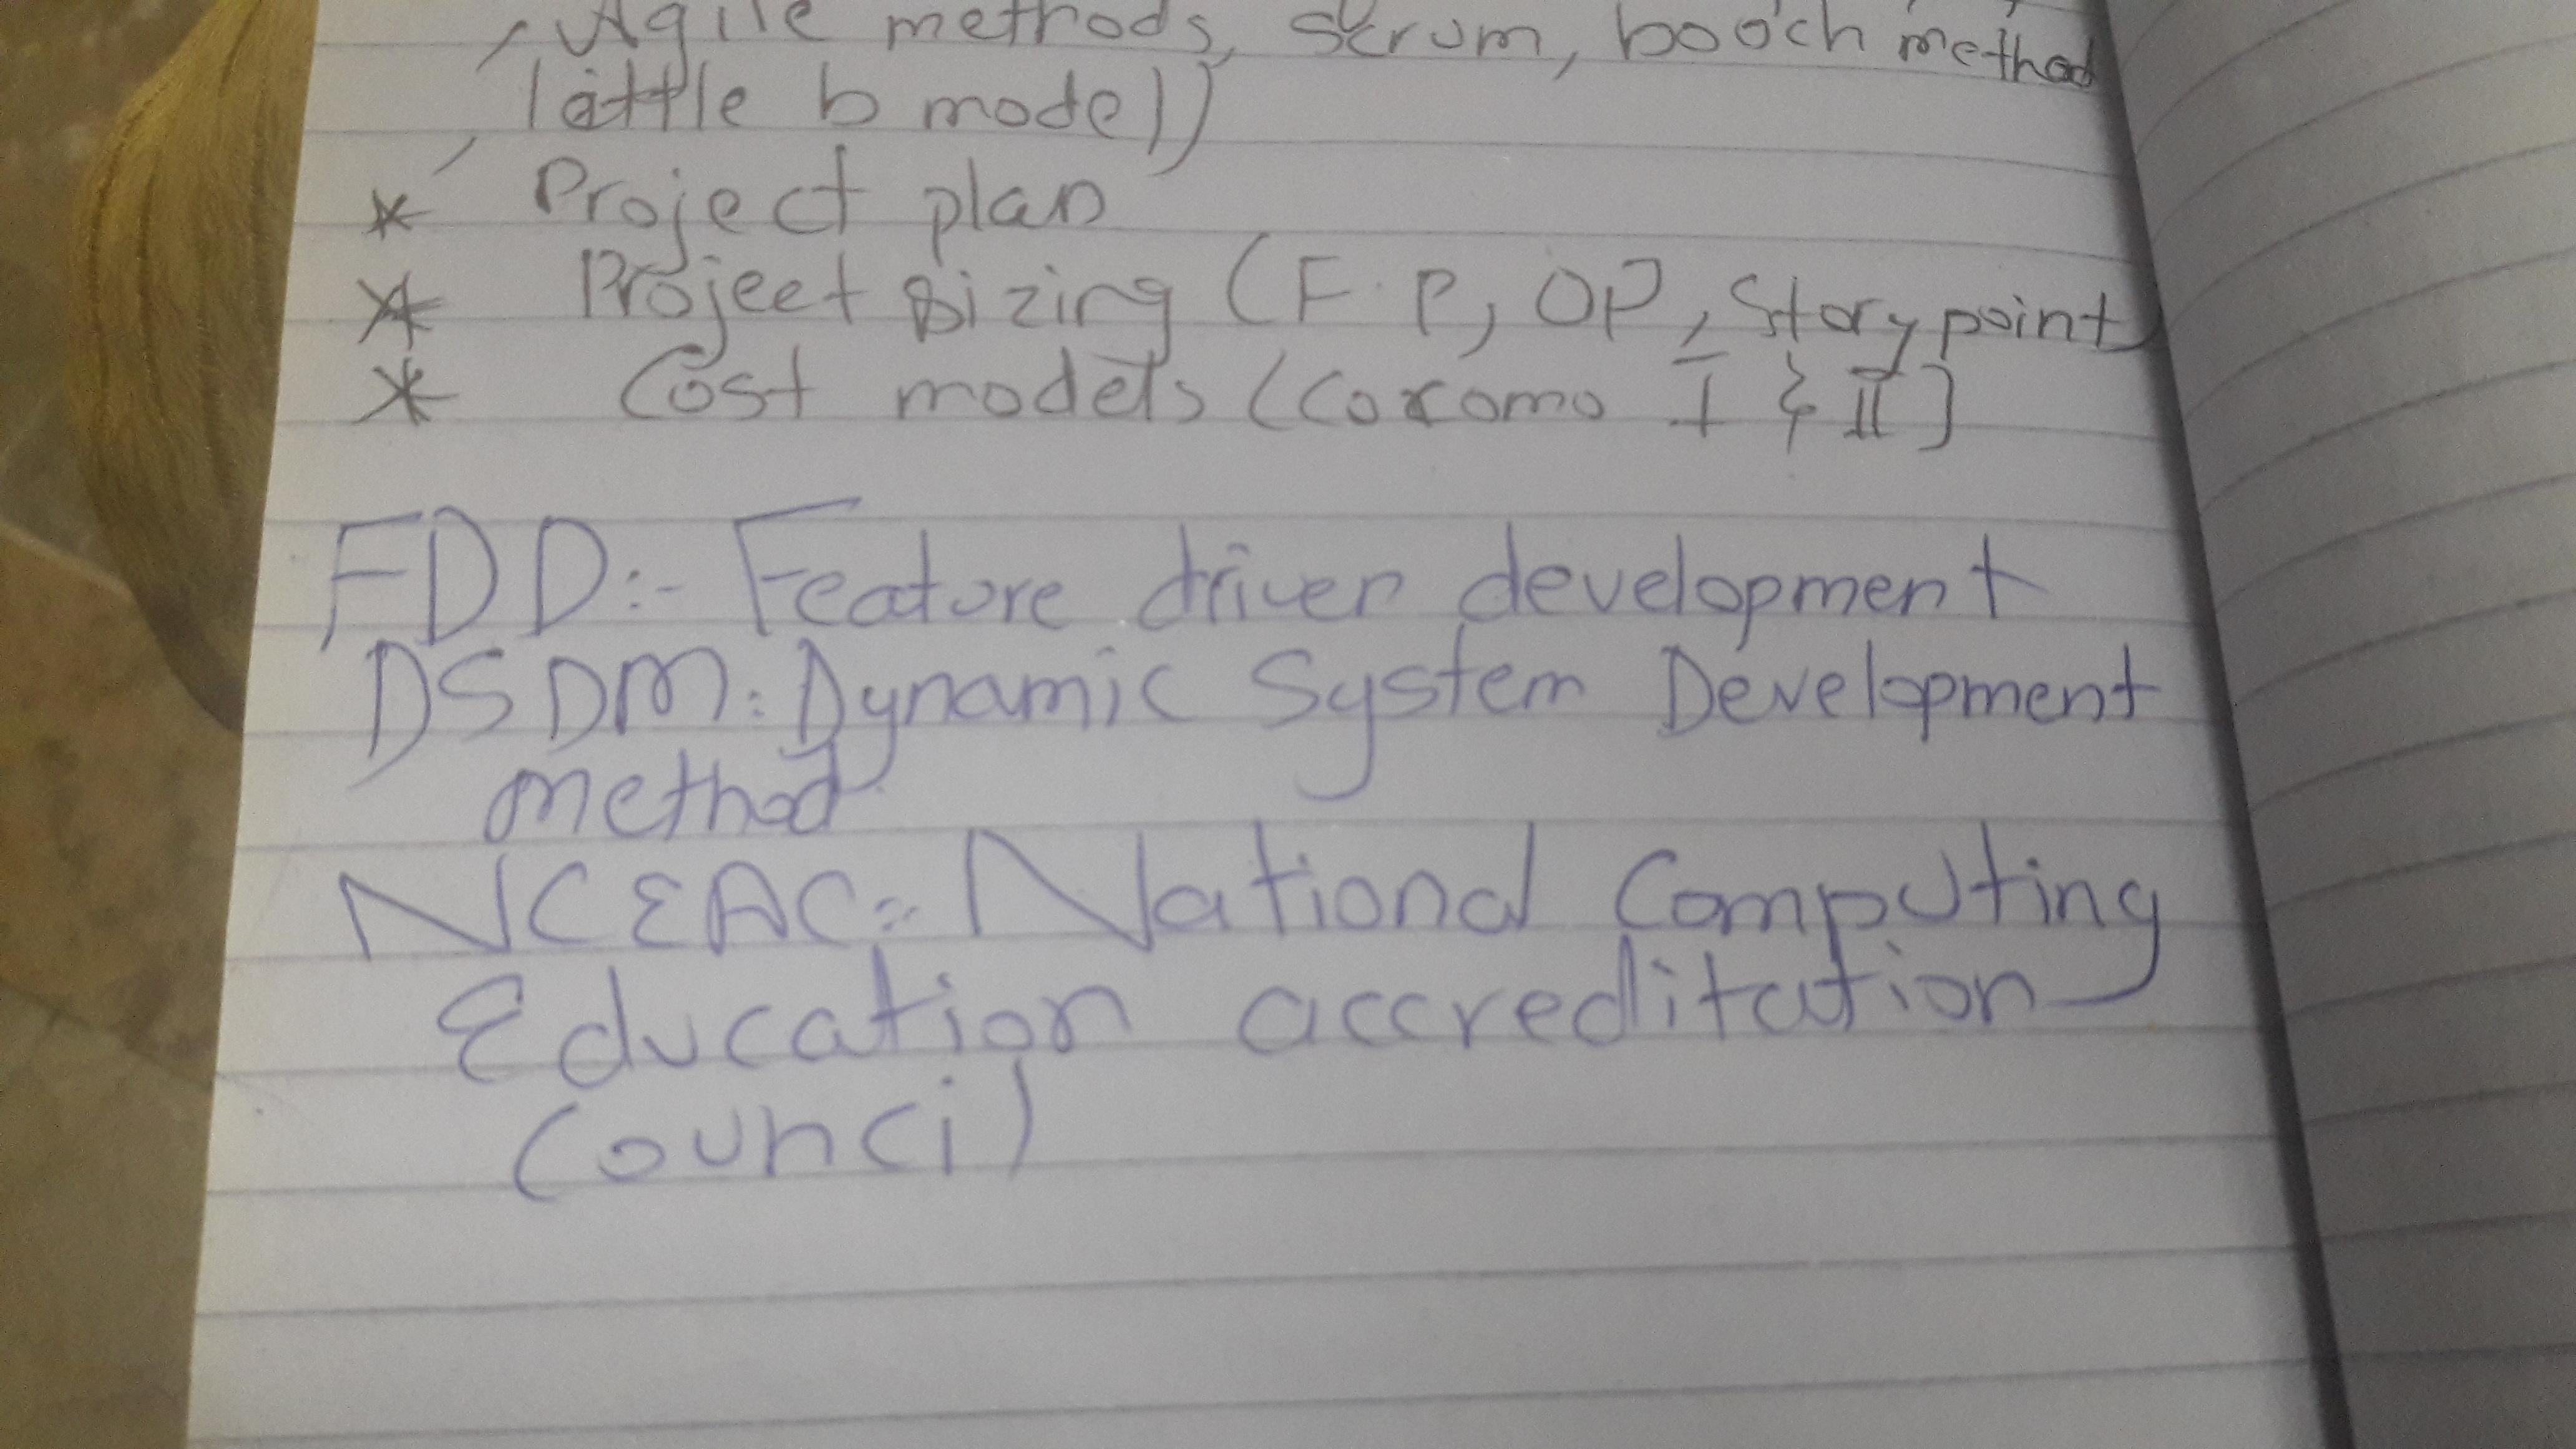 Agile methods, scrum, booch method
lattle b model)
* Project plan
* Project sizing (F.P, OP, Story point)
* Cost models (Cocomo I & II)
FDD:- Feature driven development
DSDM: Dynamic System Development
method
NCEAC:- National Computing
Education accreditation
Council